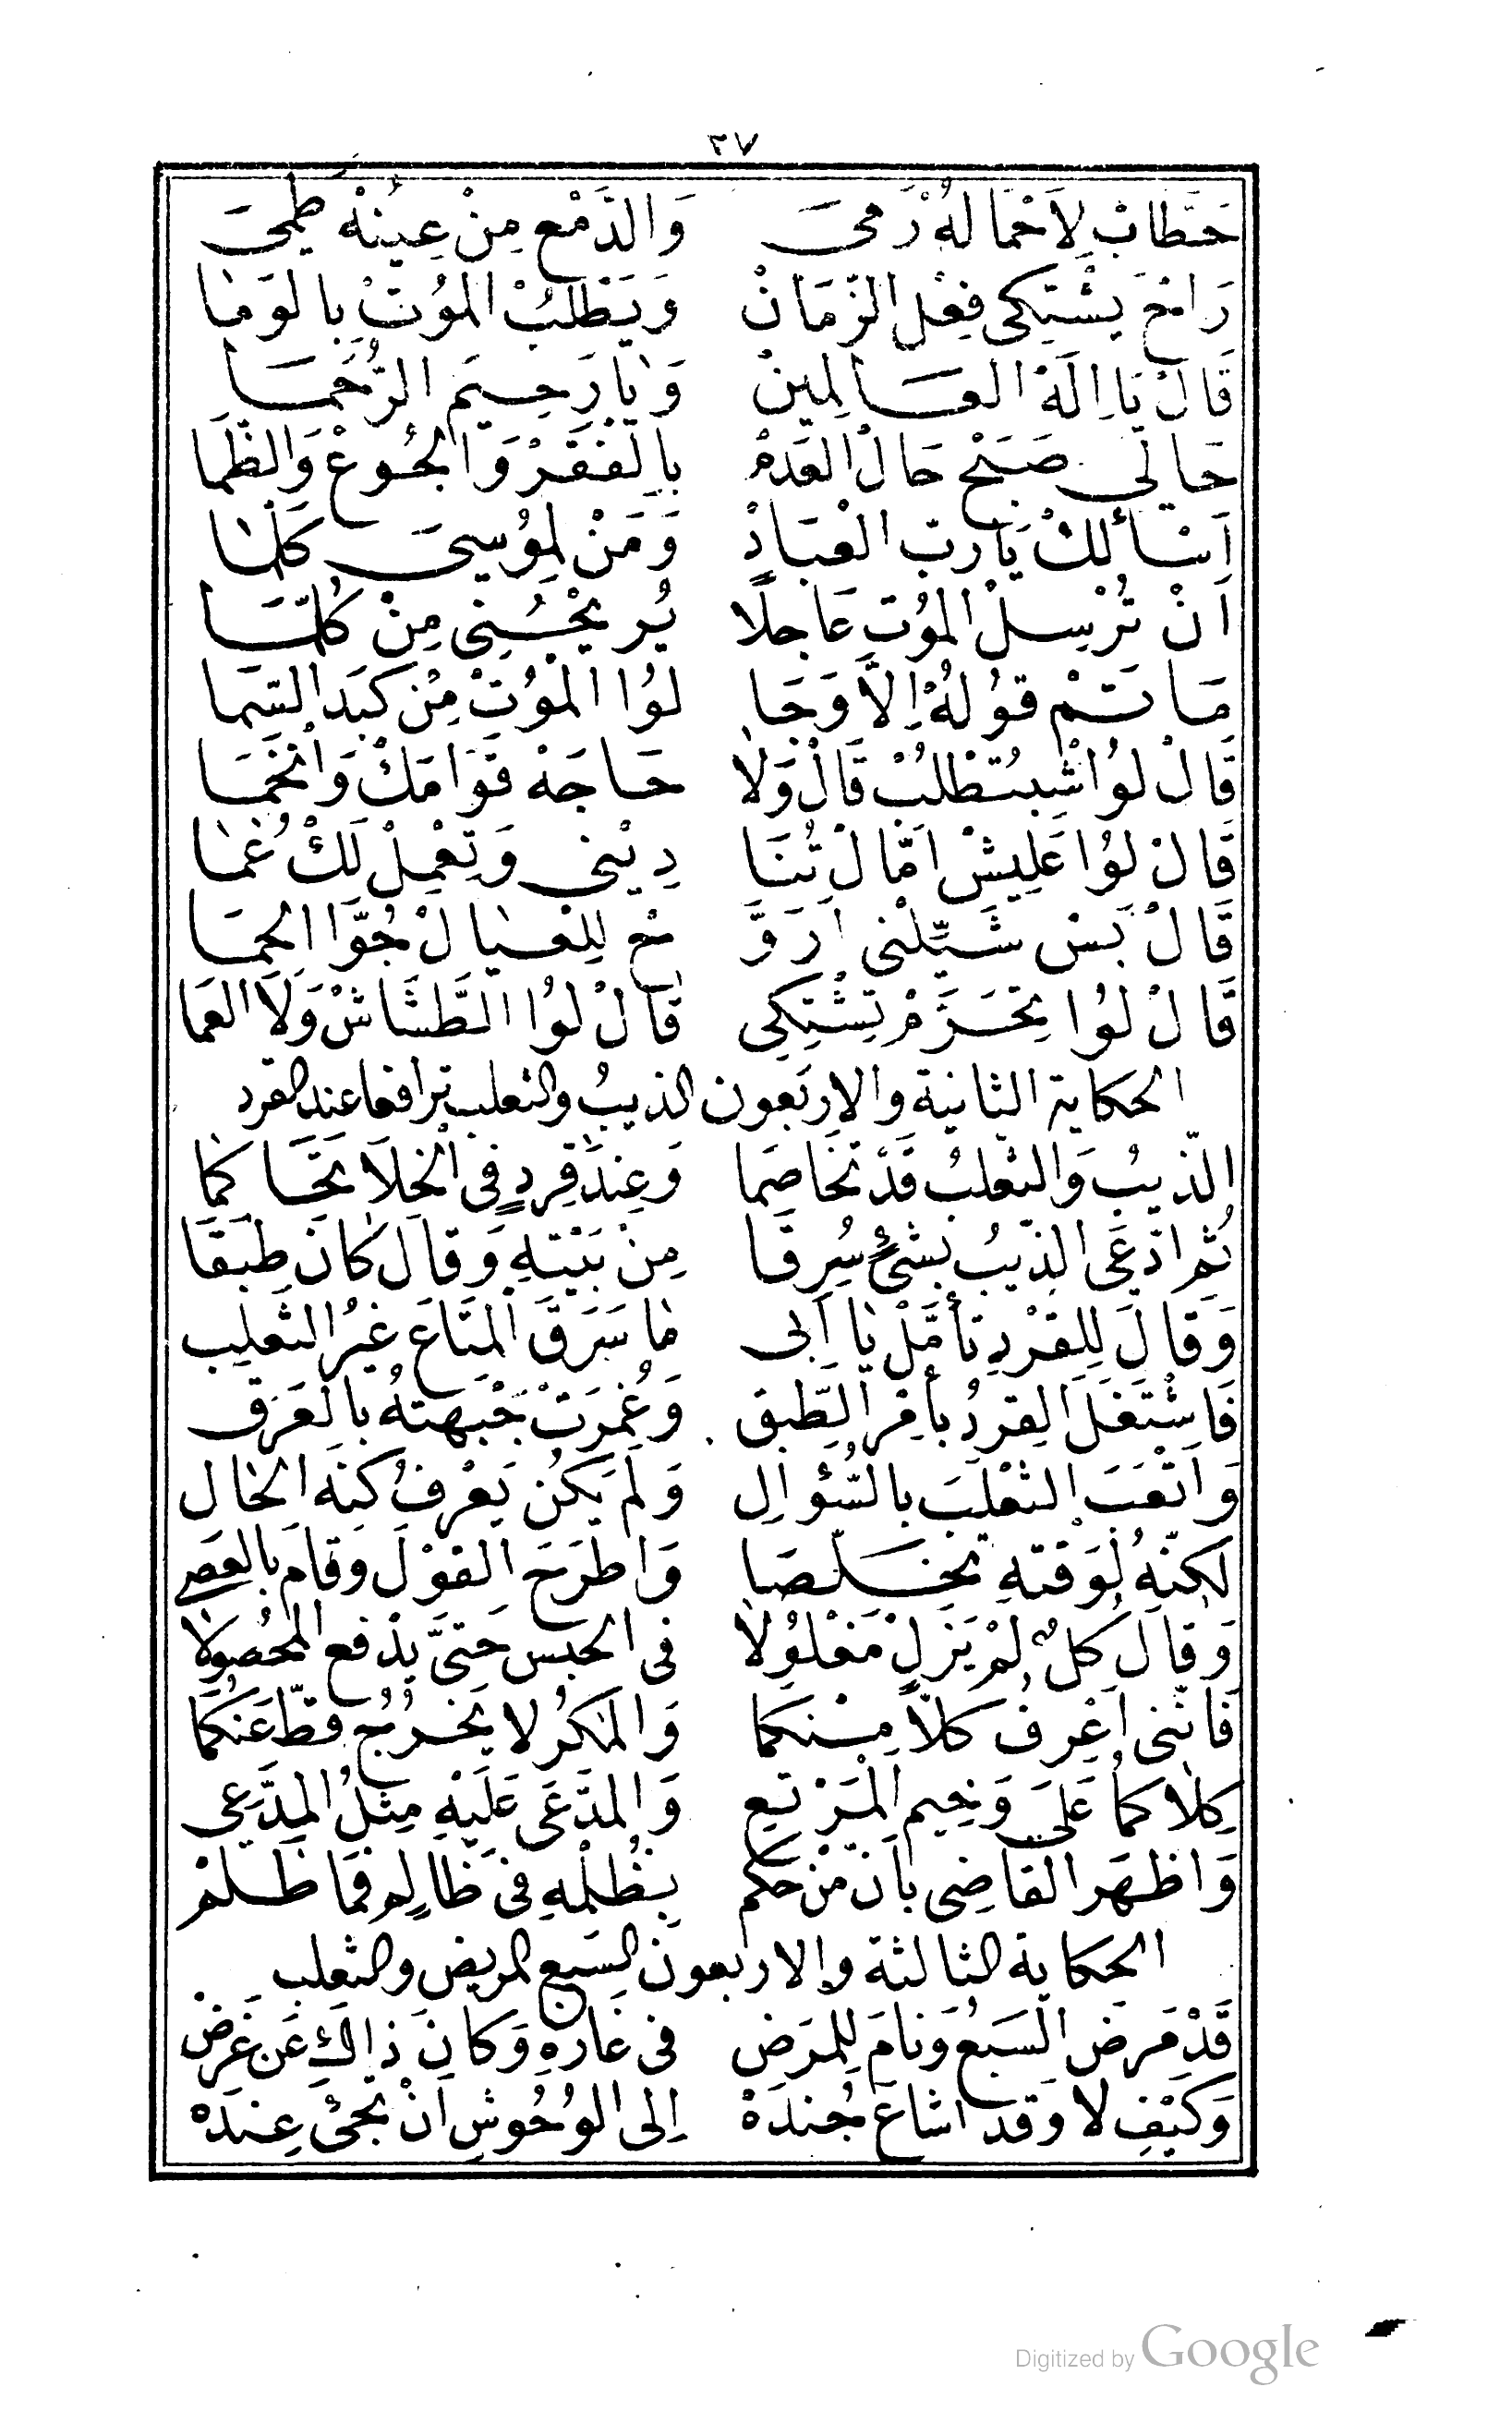 ٣٧
حَطَّابْ لِاَحْمَالهُ رَمىَ وَالدَّمْع مِنْ عِينُهْ طَمىَ
رَايحَ يشْتِكى فِعْل الزَّمَانْ وَيَطْلبُ الْمُوتْ بالوَمَا
قَالْ يَا اِلَهْ العَالَمِينْ وَيَا رَحِيمَ الرُّحَمَا
حَالي صَبَحْ حَالْ العَدمْ بِالفَقَرْ وَالجُوعْ وَالظَّمَا
اَسْأَلكْ يَارب العْبَادْ وَمَنْ لمُوسىَ كَلَّمَا
اَنْ تُرْسِلْ المُوتِ عَاجِلًا يُريحْنِى مِنْ كُلَّمَا
مَا تَمْ قُولهُ اِلاَّ وَجَا لوُا المُوتْ مِنْ كَبَد السَّما
قَالْ لوُا اشْبتُطْلُبْ قَالْ وَلَا حَاجَهْ قَوَامَكْ وَانْحَمَا
قَالْ لوُا عَلِيشْ اَمَّالْ تُنَا دِيْنِى وَتِعْمِلْ لَكْ غُمَا
قَالْ بَسْ شَيِّلْنى اَرَوَّ حْ لِلعيَالْ جُوَّا الحِمَا
قَالْ لوُا بتحَزَمْ تِشْتِكِى قَالْ لوُا الطَّشَاشْ وَلَا العَمَا
الحكاية الثانية والاربعون الذيبُ والثعلب ترافعا عند القرد
الذّيبُ وَالثعلبُ قَدْ تخَاصَمَا وَعِندَ قِردٍ فى الْخلَا تحَاكما
ثُم ادّعَى الذيبُ بشئٍ سُرِقَا مِنْ بَيْتهِ وَقالَ كانَ طبَقَا
وَقَالَ لِلقِرْدِ تأمَّلْ يَا اَبى مَا سَرَقَ المتَاعَ غيرُ الثعلِب
فَاشْتغَلَ القِردُ بأمْرِ الطّبق وَغُمرَتْ جَبْهتهُ بالعَرَق
وَاتعَبَ الثعْلبَ بالسُّؤالِ وَلم يكنْ يَعْرفُ كنهَ الحال
لكنّهُ لوَقتهِ تخلّصَا وَاطرَحَ القوْلَ وَقامَ بالعَصى
وَقالَ كلٌ لمْ يَزَلْ مَغْلوُلَا فى الحبْس حَتىَّ يدْفع المحُصوَلا
فَانّنى اَعْرِفُ كلاًّ مِنكما وَالمَكرُ لا يَخرُجُ قطّ عَنكُمَا
كِلَاكمَا عَلىَ وَخِيم المَرْتع وَالمدَّعَى عَلَيْهِ مِثلُ المدَّعِى
وَاظهَر القاضِى بأنّ مَنْ حَكم بظُلْمهِ فى ظَالمٍ فمَا ظَلمْ
الحكاية الثالثة والاربعون السَبع المريض والثعلب
قَدْ مَرضَ السَبعُ وَنامَ لِلمرَضِ فى غارهِ وَكانَ ذاكَ عَن غَرضْ
وَكيْف لا وَقد اشاعَ جُندَهْ اِلى الوُحُوشِ اَنْ تجىْ عِندَهْ
Digitized by Google